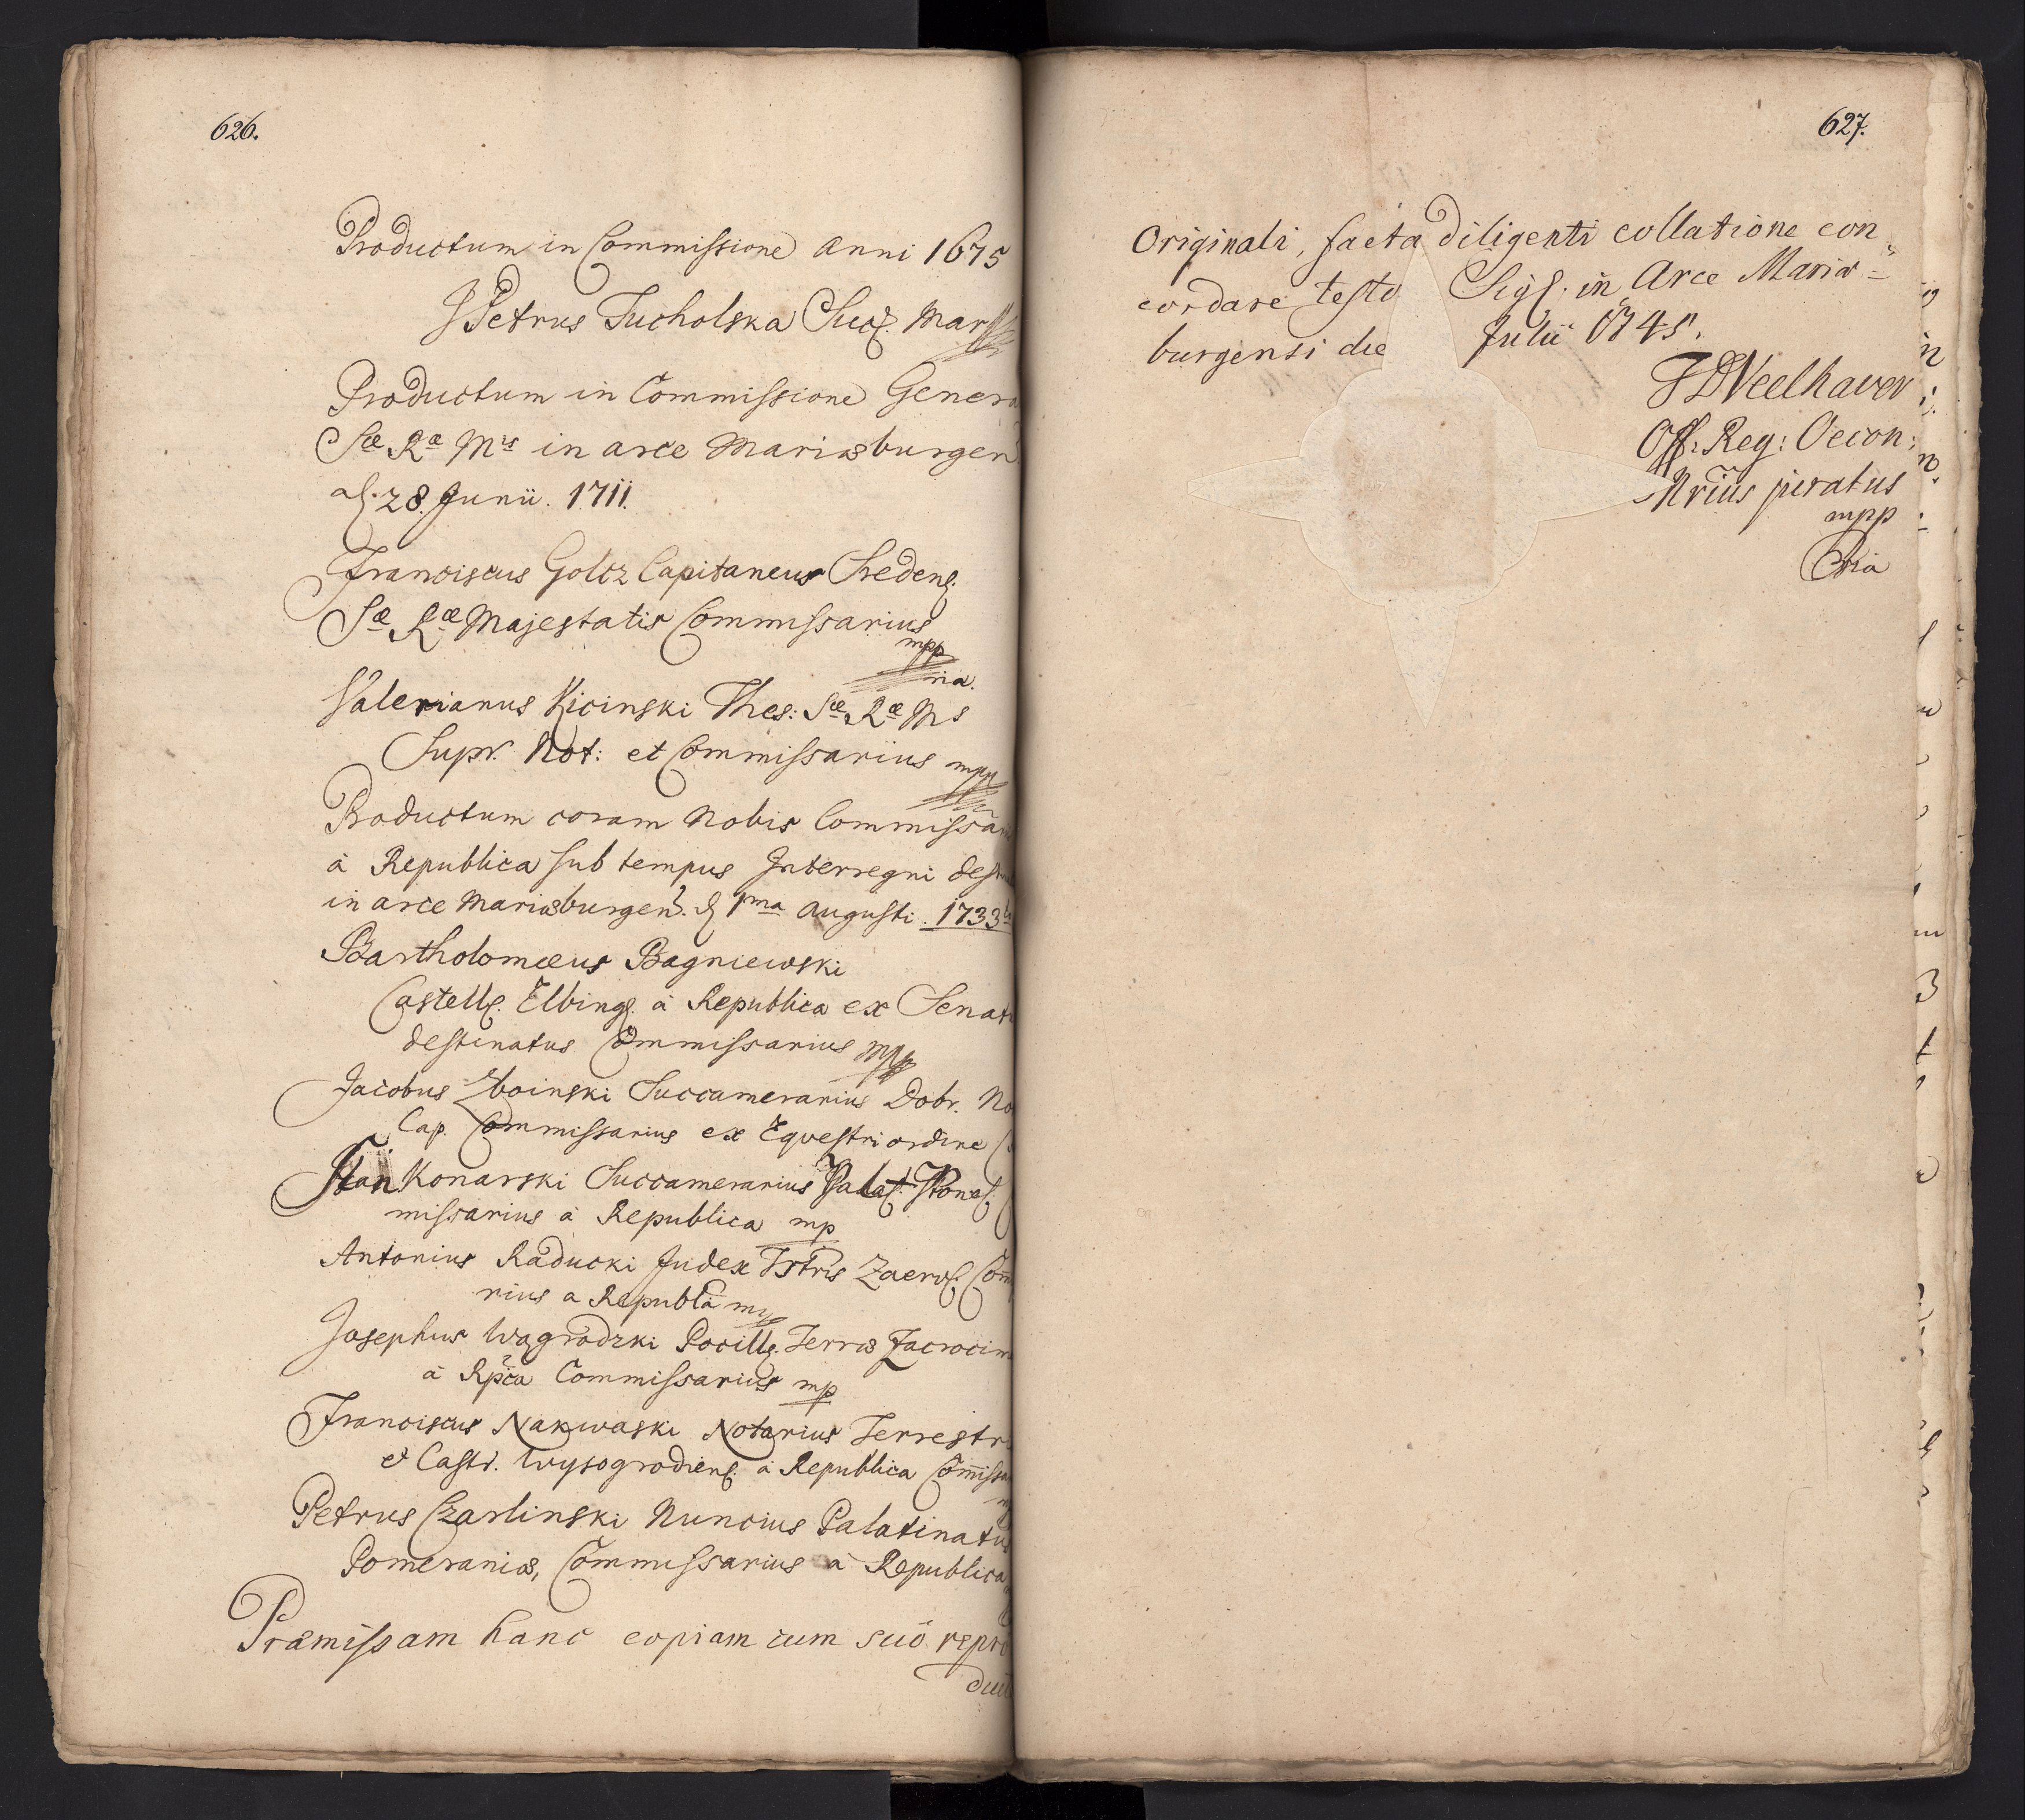 626.
Productum in Commissione Anni 1675
Petrus Tucholska Succ. Mar
Productum in Commissione Genera
Sæ Ræ Mtis in arce Mariæburgen
d. 28. Junii. 1711.
Franciscus Goltz Capitaneus Sredens.
Sæ Ræ Majestatis Commissarius
mpp
ria.
Valerianus Kicinski Thes: Sæ Ræ Ms
Supr. Not: et Commissarius mpp
Productum coram Nobis Commissari
à Republica sub tempus Interregni dest
in arce Mariæburgen. d. 1ma Augusti. 1733
Bartholomæus Bagniewski
Castell. Elbing. à Republica ex Senat
destinatus Commissarius mpp
Jacobus Zboinski Succamerarius Dobr. No
Cap. Commissarius ex Equestri ordine
Jan Konarski Succamerarius Palat. Pom.
missarius à Republica mp
Antonius Raducki Judex Tstris Zacro. Com
rius a Republa mp
Josephus Wągrodzki Pocill. Terræ Zacrocim
à Rpca Commissarius mp
Franciscus Nakwaski Notarius Terrestr
et Castr. Wysogrodiens. à Republica Commissa
Petrus Czarlinski Nuncius Palatinatus
Pomeraniæ, Commissarius a Republica
Præmissam hanc copiam cum suo repro
duct
627.
Originali, facta diligenti collatione con
cordare testor Sigl. in Arce Mariæ=
burgensi die Julii 1745.
Off: Reg: Oecon:
Nrius juratus
mpp
ria